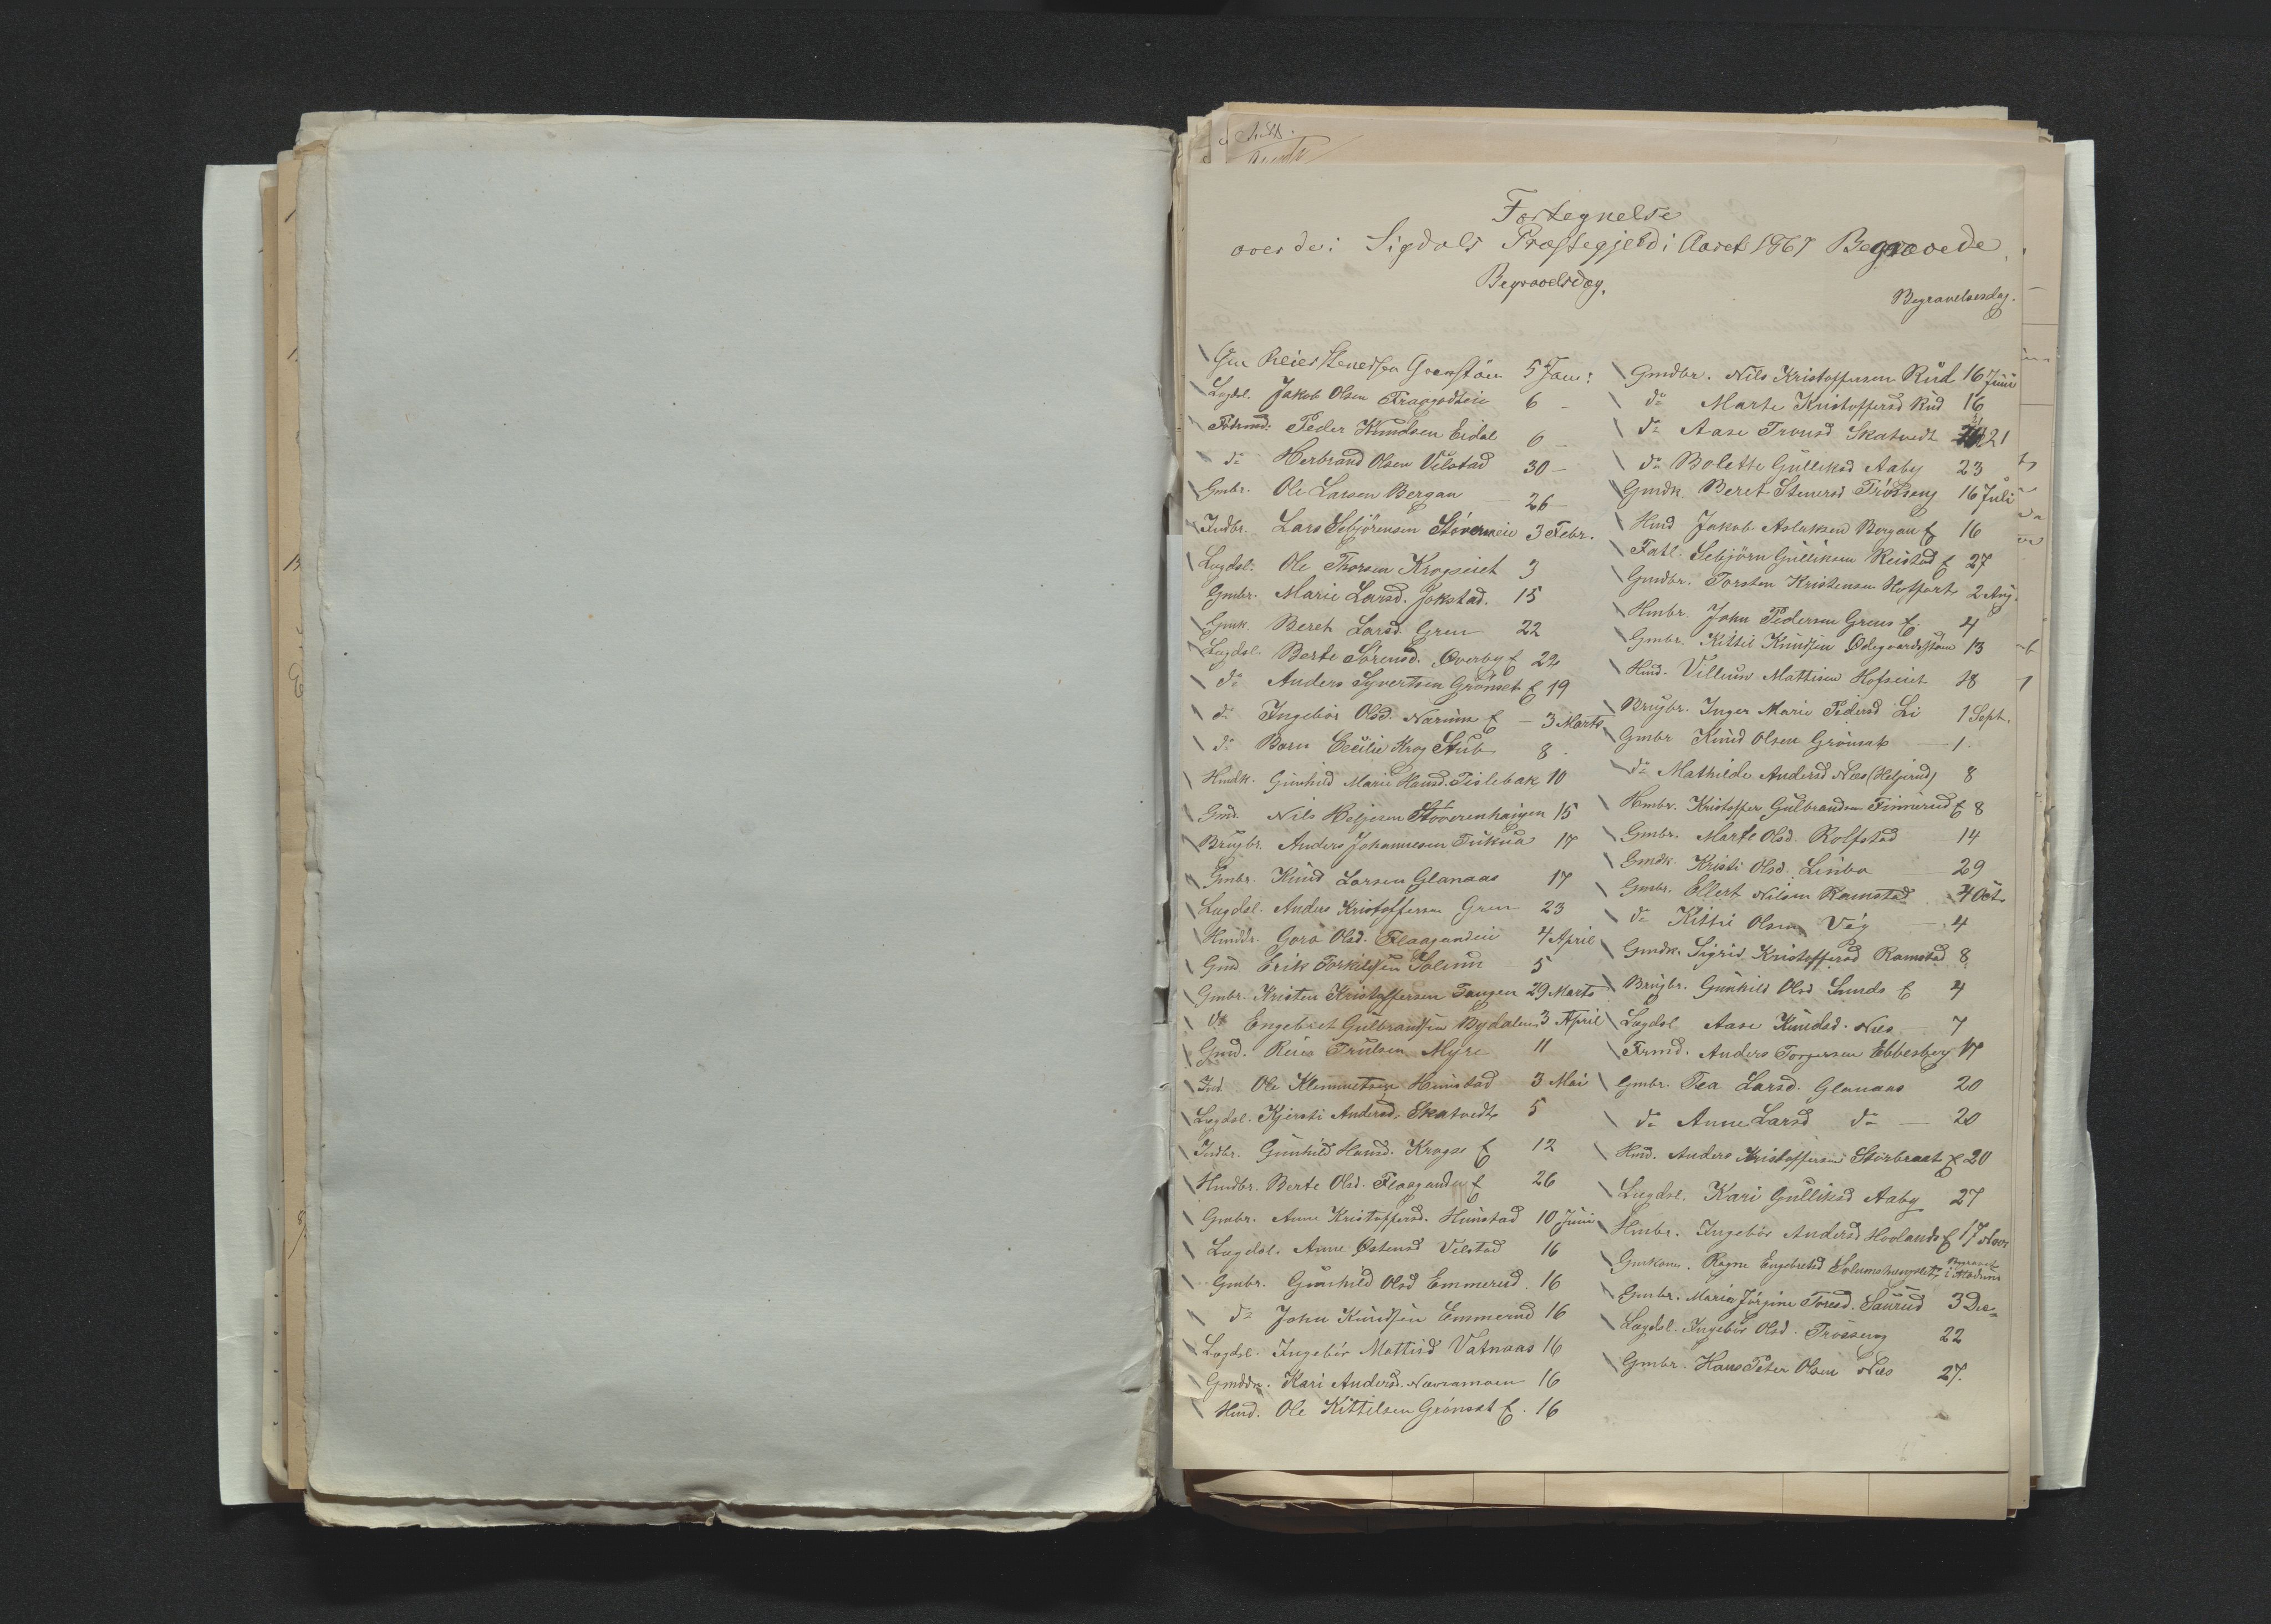 Fortegnelse
over de i Sigdals Præstegjeld i Aaret 1867 Begravede
Begravelsdag.
Begravelsesdag.
5 Jan:
Lægdsl. Jakob Olsen 6 -
Peder Knudsen Eidal 6 -
do Herbrand Olsen Velstad 30 -
Gmbr. Ole Larsen Bergan 26 -
Indbr. Lars Sebjörnsen 3 Febr.
Lægdsl. Ole Thorsen Krogseiet 3
Gmbr. Marie Larsd. Jokstad. 15
Gmk. Beret Larsd. Gren 22
Lægdsl. Berte Sörensd. Överby E 22
do Anders Syvertsen Grönset E 19
do Ingebör Olsd. Narum E - 3 Marts
do Barn Cecilie Krog Stub 8 -
Hmdk. Gunhild Marie Hansd. Tislebak 10
Gmd. Nils Helgesen Stöverenhaugen 15
Brugbr. Anders Johannesen 17
Gmbr. Knud Larsen Glanaas 17
Lægdsl. Anders Kristoffersen Gren 23
Goro Olsd. Flaagandeie 4 April
Gmd. Erik Torkildsen Solum 5
Gmbr. Kristen Kristoffersen Tangen 29 Marts
do Engebret Gulbrandsen Bydalen 3 April
Gmd. Reier Trulsen Myre 11
Ind. Ole Klemmetsen Hunstad 3 Mai
Lægdsl. Kjersti Andersd. Skatvedt 5
Indbr. Gunhild Hansd. Krogs E 12
Hmdbr. Berte Olsd. Flaagande E 26
Gmbr. Anne Kristoffersd. Hunstad 10 Juni
Lægdsl. Anne Östensd Velstad 16
Gmbr. Gunhild Olsd Emmerud 16
do John Knudsen Emmerud 16
Lægdsl. Ingebör Mattisd Vatnaas 16
Kari Andersd. Navramoen 16
Hmd. Ole Kittilsen Grönset E. 16
Gmdbr. Nils Kristoffersen Rud 16 Juni
do Marte Kristoffersd Rud 16
do Aase Tronsd Skatvedt 21
do Bolette Gulliksd Aaby 23
Gmdk. Beret Stenersd Tröseng 16 Juli
Hmd Jakob Aslaksen Bergan E 16
Fatl. Sebjörn Gulliksen Reistad E 27
Gmdbr. Torsten Kristensen 2 Aug.
Hmbr. John Pedersen Grens E. 4
Gmbr. Kittil Knudsen Ödegaardsstöen 13
Hmd. Villum Mattisen Hofseiet 28
Brugbr. Inger Marie Pedersd Li 1 Sept.
Gmbr Knud Olsen Grönset - 1
do Mathilde Andersd Næs (Helgerud) 8
Hmbr. Kristoffer Gulbrandsen Finnerud E 8
Gmbr. Marte Olsd. Rolfstad 14
Gmdk. Kristi Olsd. Linbo 29
Gmbr. Ellert Nilsen Ramstad 4 Oct
do Kittil Olsen Vég - 4
Gmdk. Sigrid Kristoffersd Ramstad 8
Brugbr. Gunhild Olsd Lunds E 4
Lægdsl Aase Knudsd. Næs 7
Anders Torgersen Ebbesberg 17
Gmbr. Tea Larsd. Glanaas 20
do Anne Larsd do - 20
Hmd. Anders Kristoffersen Storbraat E 20
Lægdsl. Kari Gulliksd Aaby 27
Hmbr. Ingebör Andersd Hovlands E 17 Nov
Gmkone. Ragne Engebretsd begravet i Modum
Gmbr. Maria Jörgine Toresd. Saurud 3 Dec
Lægdsl. Ingebör Olsd. Tröseng 22
Gmbr. Hans Peter Olsen Næs 27.